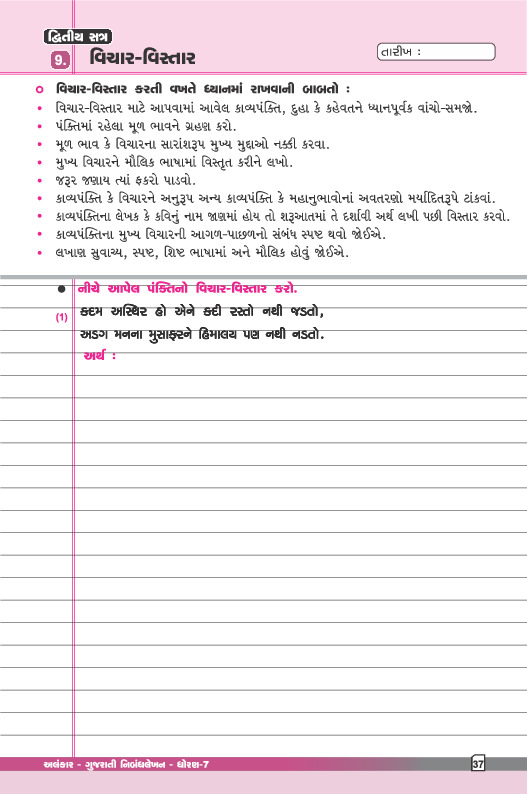 દ્વિતીય સત્ર
9. વિચાર-વિસ્તાર
તારીખ :
વિચાર-વિસ્તાર કરતી વખતે ધ્યાનમાં રાખવાની બાબતો :
• વિચાર-વિસ્તાર માટે આપવામાં આવેલ કાવ્યપંક્તિ, દુહા કે કહેવતને ધ્યાનપૂર્વક વાંચો-સમજો.
• પંક્તિમાં રહેલા મૂળ ભાવને ગ્રહણ કરો.
• મૂળ ભાવ કે વિચારના સારાંશરૂપ મુખ્ય મુદ્દાઓ નક્કી કરવા.
• મુખ્ય વિચારને મૌલિક ભાષામાં વિસ્તૃત કરીને લખો.
• જરૂર જણાય ત્યાં ફકરો પાડવો.
• કાવ્યપંક્તિ કે વિચારને અનુરૂપ અન્ય કાવ્યપંક્તિ કે મહાનુભાવોનાં અવતરણો મર્યાદિતરૂપે ટાંકવાં.
• કાવ્યપંક્તિના લેખક કે કવિનું નામ જાણમાં હોય તો શરૂઆતમાં તે દર્શાવી અર્થ લખી પછી વિસ્તાર કરવો.
• કાવ્યપંક્તિના મુખ્ય વિચારની આગળ-પાછળનો સંબંધ સ્પષ્ટ થવો જોઈએ.
• લખાણ સુવાચ્ય, સ્પષ્ટ, શિષ્ટ ભાષામાં અને મૌલિક હોવું જોઈએ.
● નીચે આપેલ પંક્તિનો વિચાર-વિસ્તાર કરો.
(1) કદમ અસ્થિર હો એને કદી રસ્તો નથી જડતો,
અડગ મનના મુસાફરને હિમાલય પણ નથી નડતો.
અર્થ :
અલંકાર - ગુજરાતી નિબંધલેખન - ધોરણ-7
37